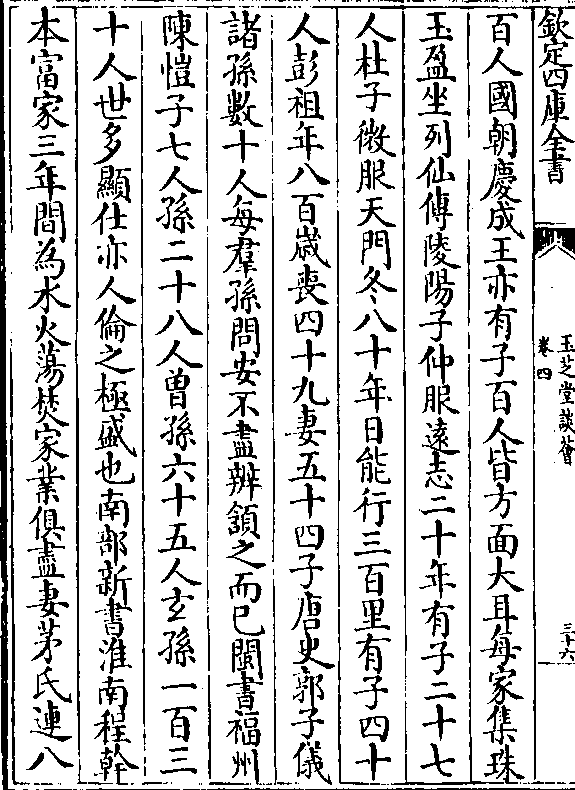 欽定四庫全書
玉芝堂談薈
卷四
三十六
百人國朝慶成王亦有子百人皆方面大耳每家集珠
玉盈坐列仙傳陵陽子仲服逺志二十年有子二十七
人杜子微服天門冬八十年日能行三百里有子四十
人彭祖年八百歳喪四十九妻五十四子唐史郭子儀
諸孫數十人每羣孫問安不盡辨頷之而已閩書福州
陳愷子七人孫二十八人曾孫六十五人𤣥孫一百三
十人世多顯仕亦人倫之極盛也南部新書淮南程幹
本富家三年間為水火蕩焚家業俱盡妻茅氏連八